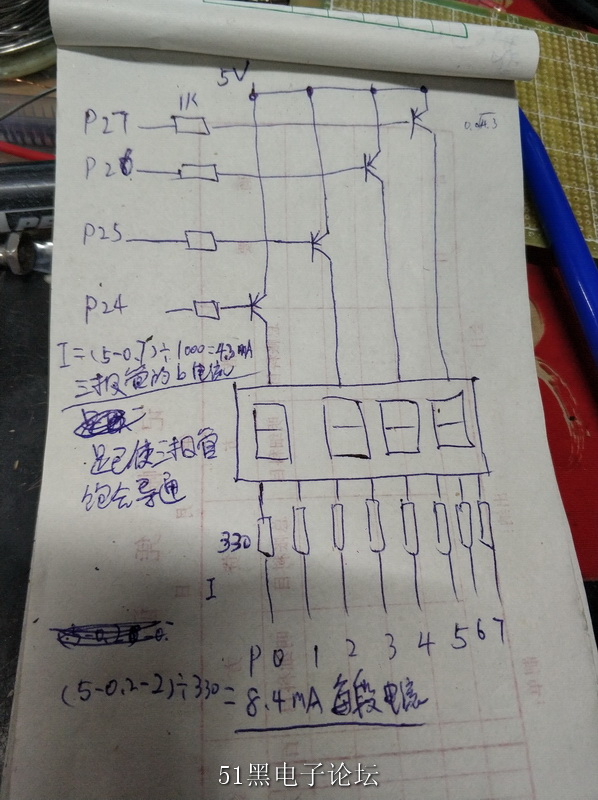 5V
1K
P27
P26
P25
P24
I=(5-0.7)÷1000=4.3mA
三极管的b电流
足已使三极管
饱合导通
330
I
P0 1 2 3 4 5 6 7
(5-0.2-2)÷330=8.4MA 每段电流
51黑电子论坛